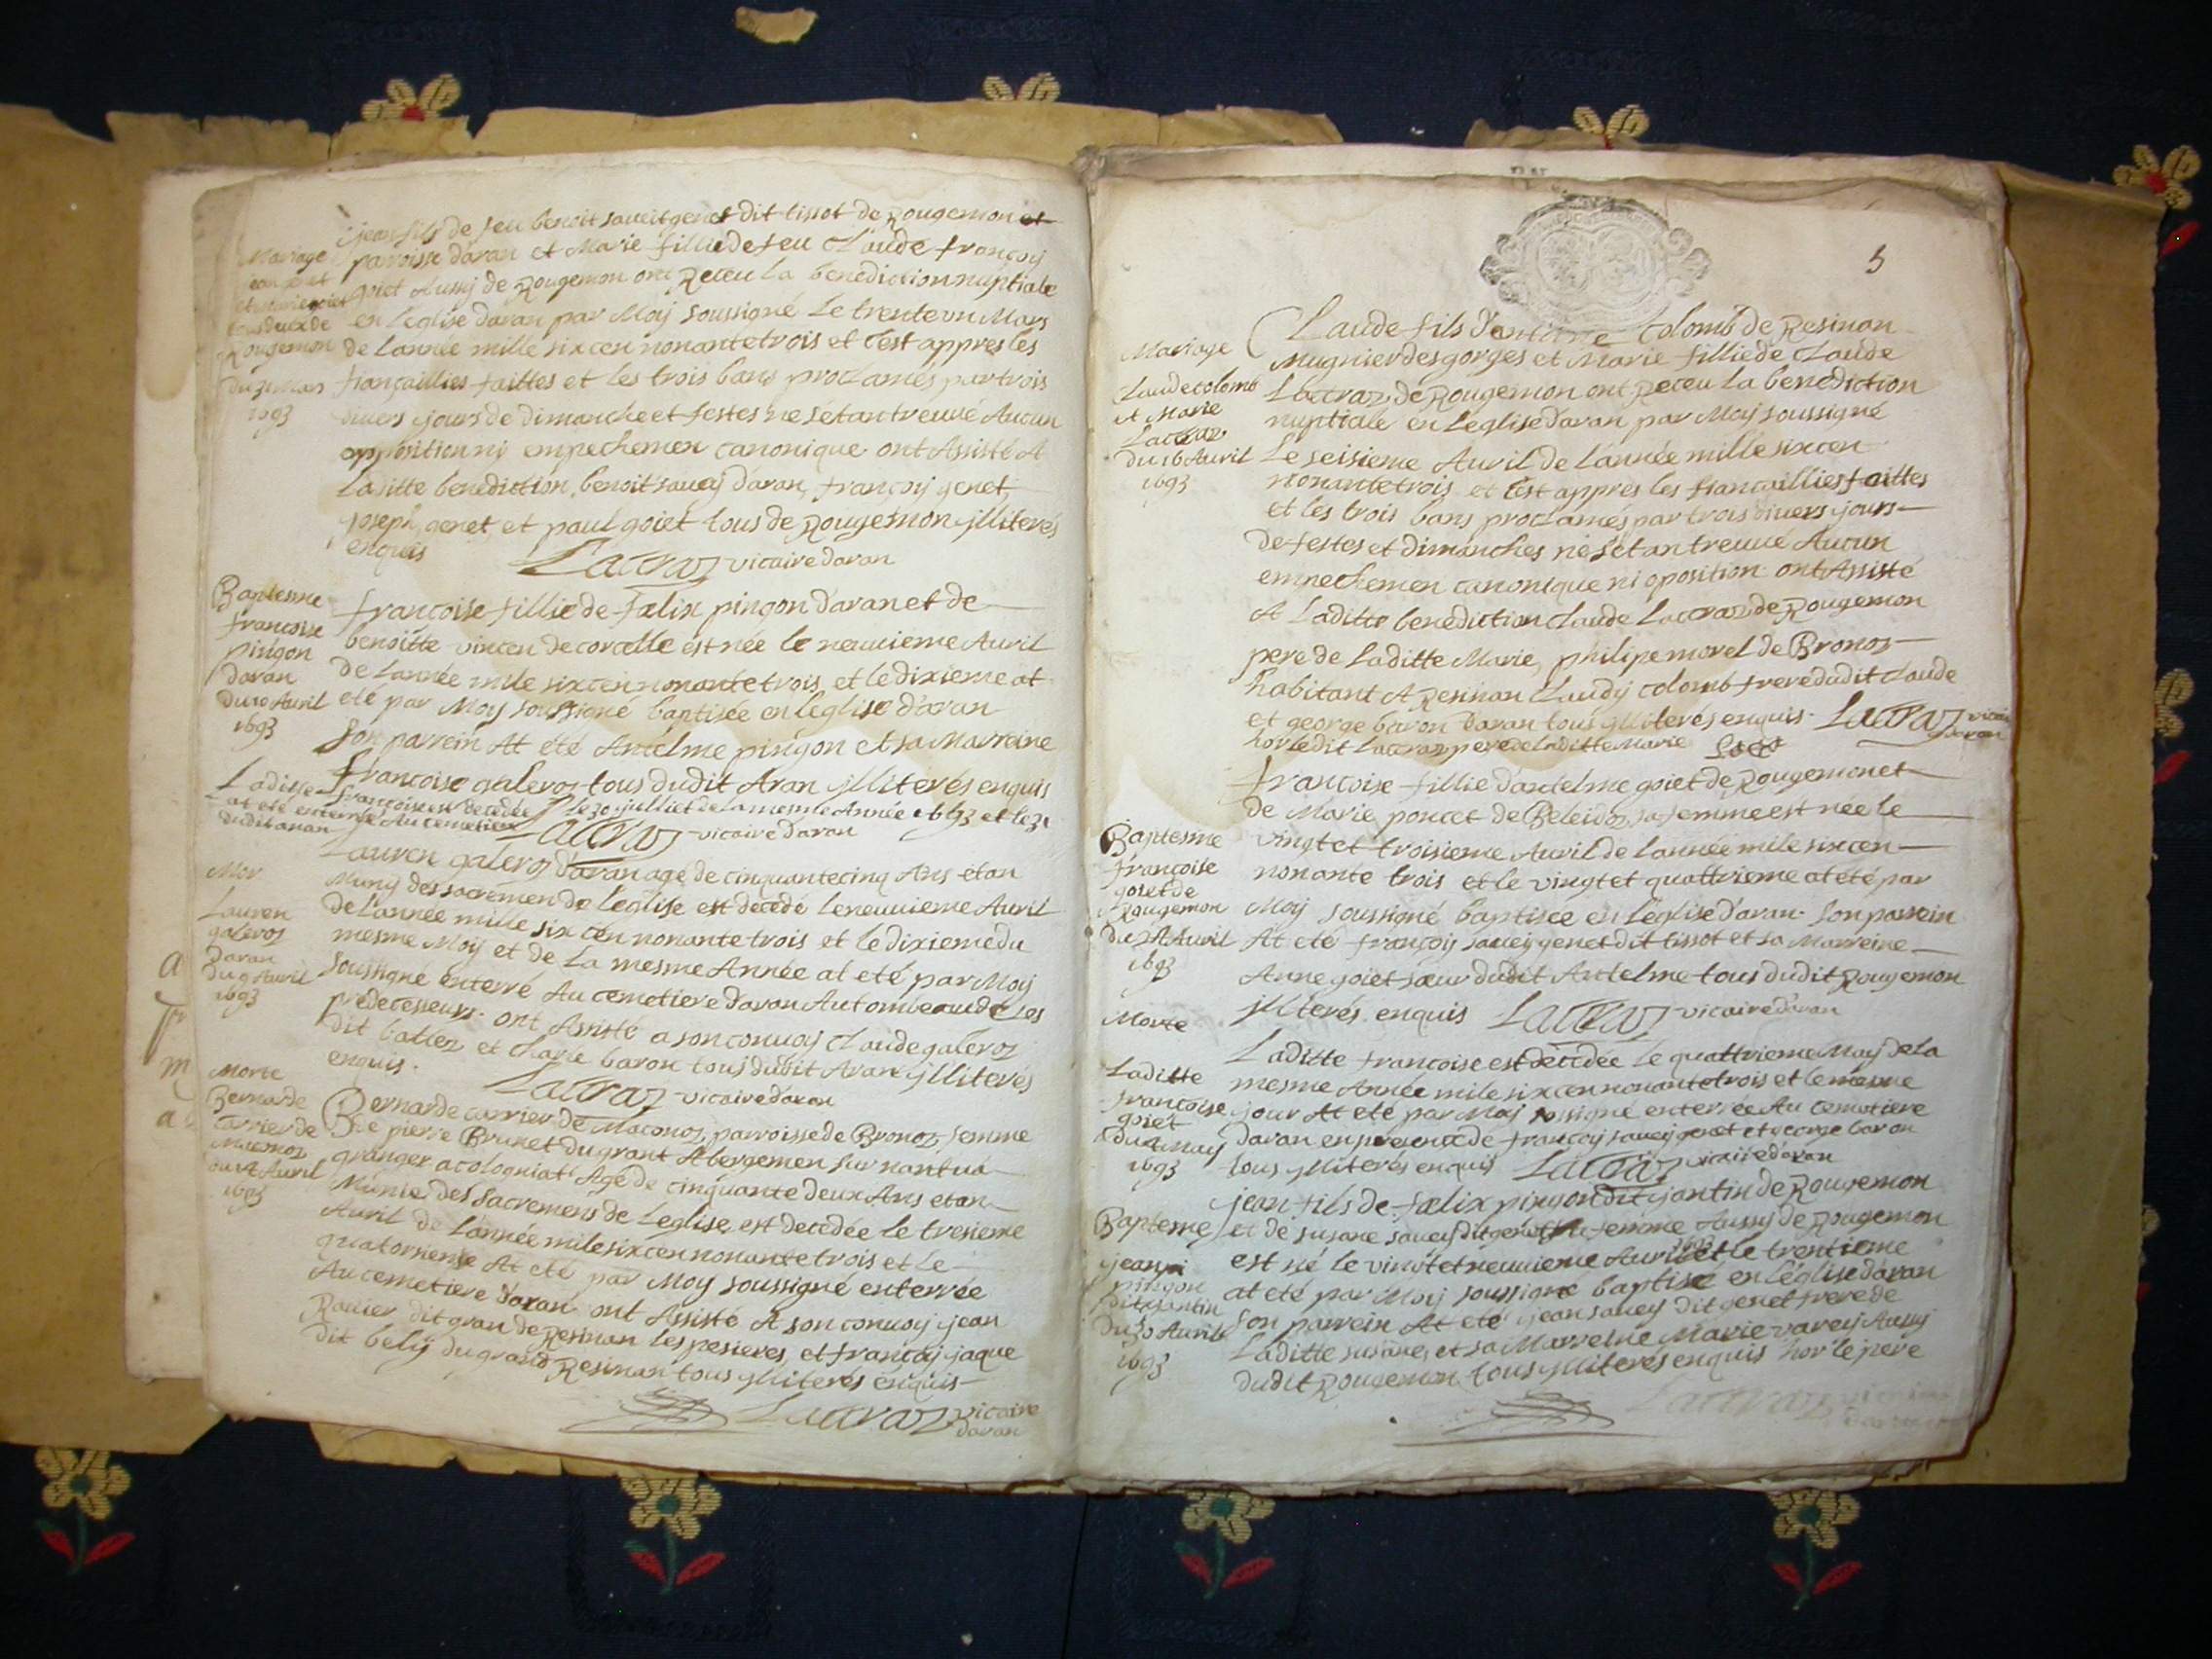 jean fils de feu benoit saveit genet dit tissot de Rougemon et
Mariage
paroisse daran et Marie fillie de feu Claude françois
jean genet
goiet Aussy de Rougemon ont Receu la benediction nuptiale
et marie goiet
en l'eglise daran par Moij soussigné Le trente un Mars
tous deux de
Rougemon
de l'année mille six cen nonante trois et c'est appres les
du 31 Mars
françaillies faittes et les trois bans proclamés par trois
1693
divers jours de dimanche et festes ne sétan treuvé Aucun
opposition ni empechemen canonique ont Assisté A
laditte benediction, benoit savey d'aran, françoij genet,
joseph genet, et paul goiet tous de Rougemon jlliterés
enquis
Lacraz vicaire daran
Baptesme
françoise fillie de fælix pingon d'aran et de
françoise
benoitte vincen de corcelle est née le neuvieme Avril
pingon
de L'année mile six cen nonante trois, et le dixieme at
daran
du 10 Avril
eté par Moy soussigné baptisée en l'eglise d'aran
1693
son parrein At eté Antelme pingon et sa Marreine
françoise galeroz tous dudit Aran jlliterés enquis
Laditte françoise est decedée le 30 jullict de la mesme Année 1693 et le 31
at eté enterrée Au cemetiere
dudit aran
Lacraz vicaire daran
Lauren galeroz d'aran agé de cinquante cinq Ans etan
Mor
Munij des sacremen de l'eglise est decedé le neuvieme Avril
Lauren
de l'année mille six cen nonante trois et le dixieme du
galeroz
mesme Moij et de la mesme Année at eté par Moij
daran
du 9 Avril
soussigné enterré Au cemetiere d'aran Au tombeau de ses
1693
predecesseurs. ont Assisté a son convoij Claude galeroz
dit ballez et Charle baron tous dudit Aran jlliterés
enquis.
Lacraz vicaire daran
Morte
Bernarde
Bernarde carrier de Maconoz, parroisse de Bronoz, femme
carrier de
de pierre Brunet du grant Abergemen sur nantua
Maconoz
granger a cologniat Agé de cinquante deux Ans etan
du 13 Avril
Munie des sacremens de l'eglise est decedée le tresieme
1693
Avril de l'année mile six cen nonante trois et le
quatorsieme At eté par Moy soussigné enterrée
Au cemetiere d'aran ont Assisté A son convoij jean
Ravier dit gran de Resinan les pesieres, et françoij jaque
dit belij du grand Resinan tous jlliterés enquis
Lacraz vicaire
daran
5
Claude fils d'antoine Colomb de Resinan
Mariage
Mugnier des gorges et Marie fillie de Claude
Claude colomb
Lacraz de Rougemon ont Receu la benediction
et Marie
Lacraz
nuptiale en l'eglise d'aran par Moij soussigné
du 16 Avril
Le seisieme Avril de l'année mille six cen
1693
nonante trois et c'est appres les françaillies faittes
et les trois bans proclamés par trois divers jours
de festes et dimanches ne sétan treuvé Aucun
empechemen canonique ni oposition ont Assisté
A Laditte benediction Claude Lacraz de Rougemon
pere de Laditte Marie, philipe morel de Bronoz
habitant A Resinan Claudy colomb frere dudit Claude
et george baron daran tous jlliterés enquis. Lacraz vicaire
daran
hor ledit Lacraz pere de laditte Marie
françoise fillie d'antelme goiet de Rougemon et
de Marie poncet de Beleidoz sa femme est née le
Baptesme
vingt et troisieme Avril de l'année mile six cen
françoise
nonante trois et le vingt et quattrieme at eté par
goiet de
Rougemon
Moij soussigné baptisée en l'eglise d'aran. Son parrein
du 24 Avril
At eté françoij savey genet dit tissot et sa Marreine
1693
Anne goiet sœur dudit Antelme tous dudit Rougemon
jlliterés enquis Lacraz vicaire daran
Morte
Laditte françoise est decedée le quattrieme May de la
Laditte
mesme Année mile six cen nonante trois et le mesme
françoise
jour At eté par Moij soussigné enterrée Au cemetiere
goiet
daran en presence de françoij savey genet et george baron
du 4 May
1693
tous jlliterés enquis Lacraz vicaire daran
jean fils de fælix pingon dit jantin de Rougemon
Bapteme
et de susane savey dit genet sa femme Aussy de Rougemon
jean
est né le vingt et neuvieme Avril 1693 et le trentieme
pingon
at eté par Moij soussigné baptisé en l'eglise d'aran
dit jantin
Son parrein At eté jean savey dit genet frere de
du 30 Avril
Laditte susane, et sa Marreine Marie varey Aussy
1693
dudit Rougemon tous jlliterés enquis hor le pere
Lacraz vicaire